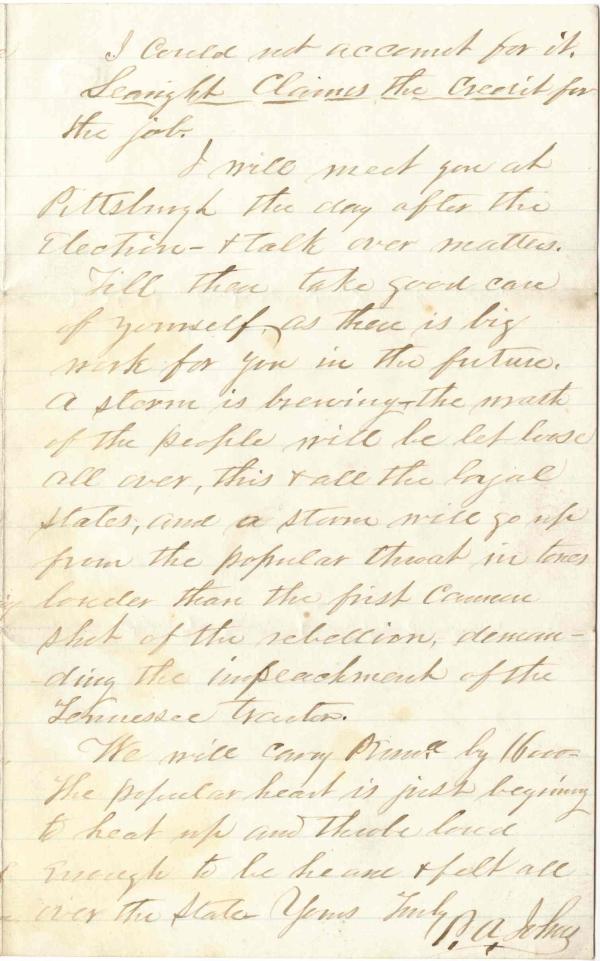 I could not account for it.
Searight Claims the Credit for
the job.
I will meet you at
Pittsburgh the day after the
Election - & talk over matters.
Till then take good care
of yourself, as there is big
work for you in the future.
A storm is brewing - the wrath
of the people will be let loose
all over, this & all the loyal
states, and a storm will go up
from the popular throat in tones
louder than the first Cannon
shot of the rebellion, deman-
-ding the impeachment of the
Tennessee traitor.
We will carry Penna. by 16000 -
The popular heart is just begining
to heat up and throb loud
Enough to be heard & felt all
over the State Yours Truly
P. A. Johns